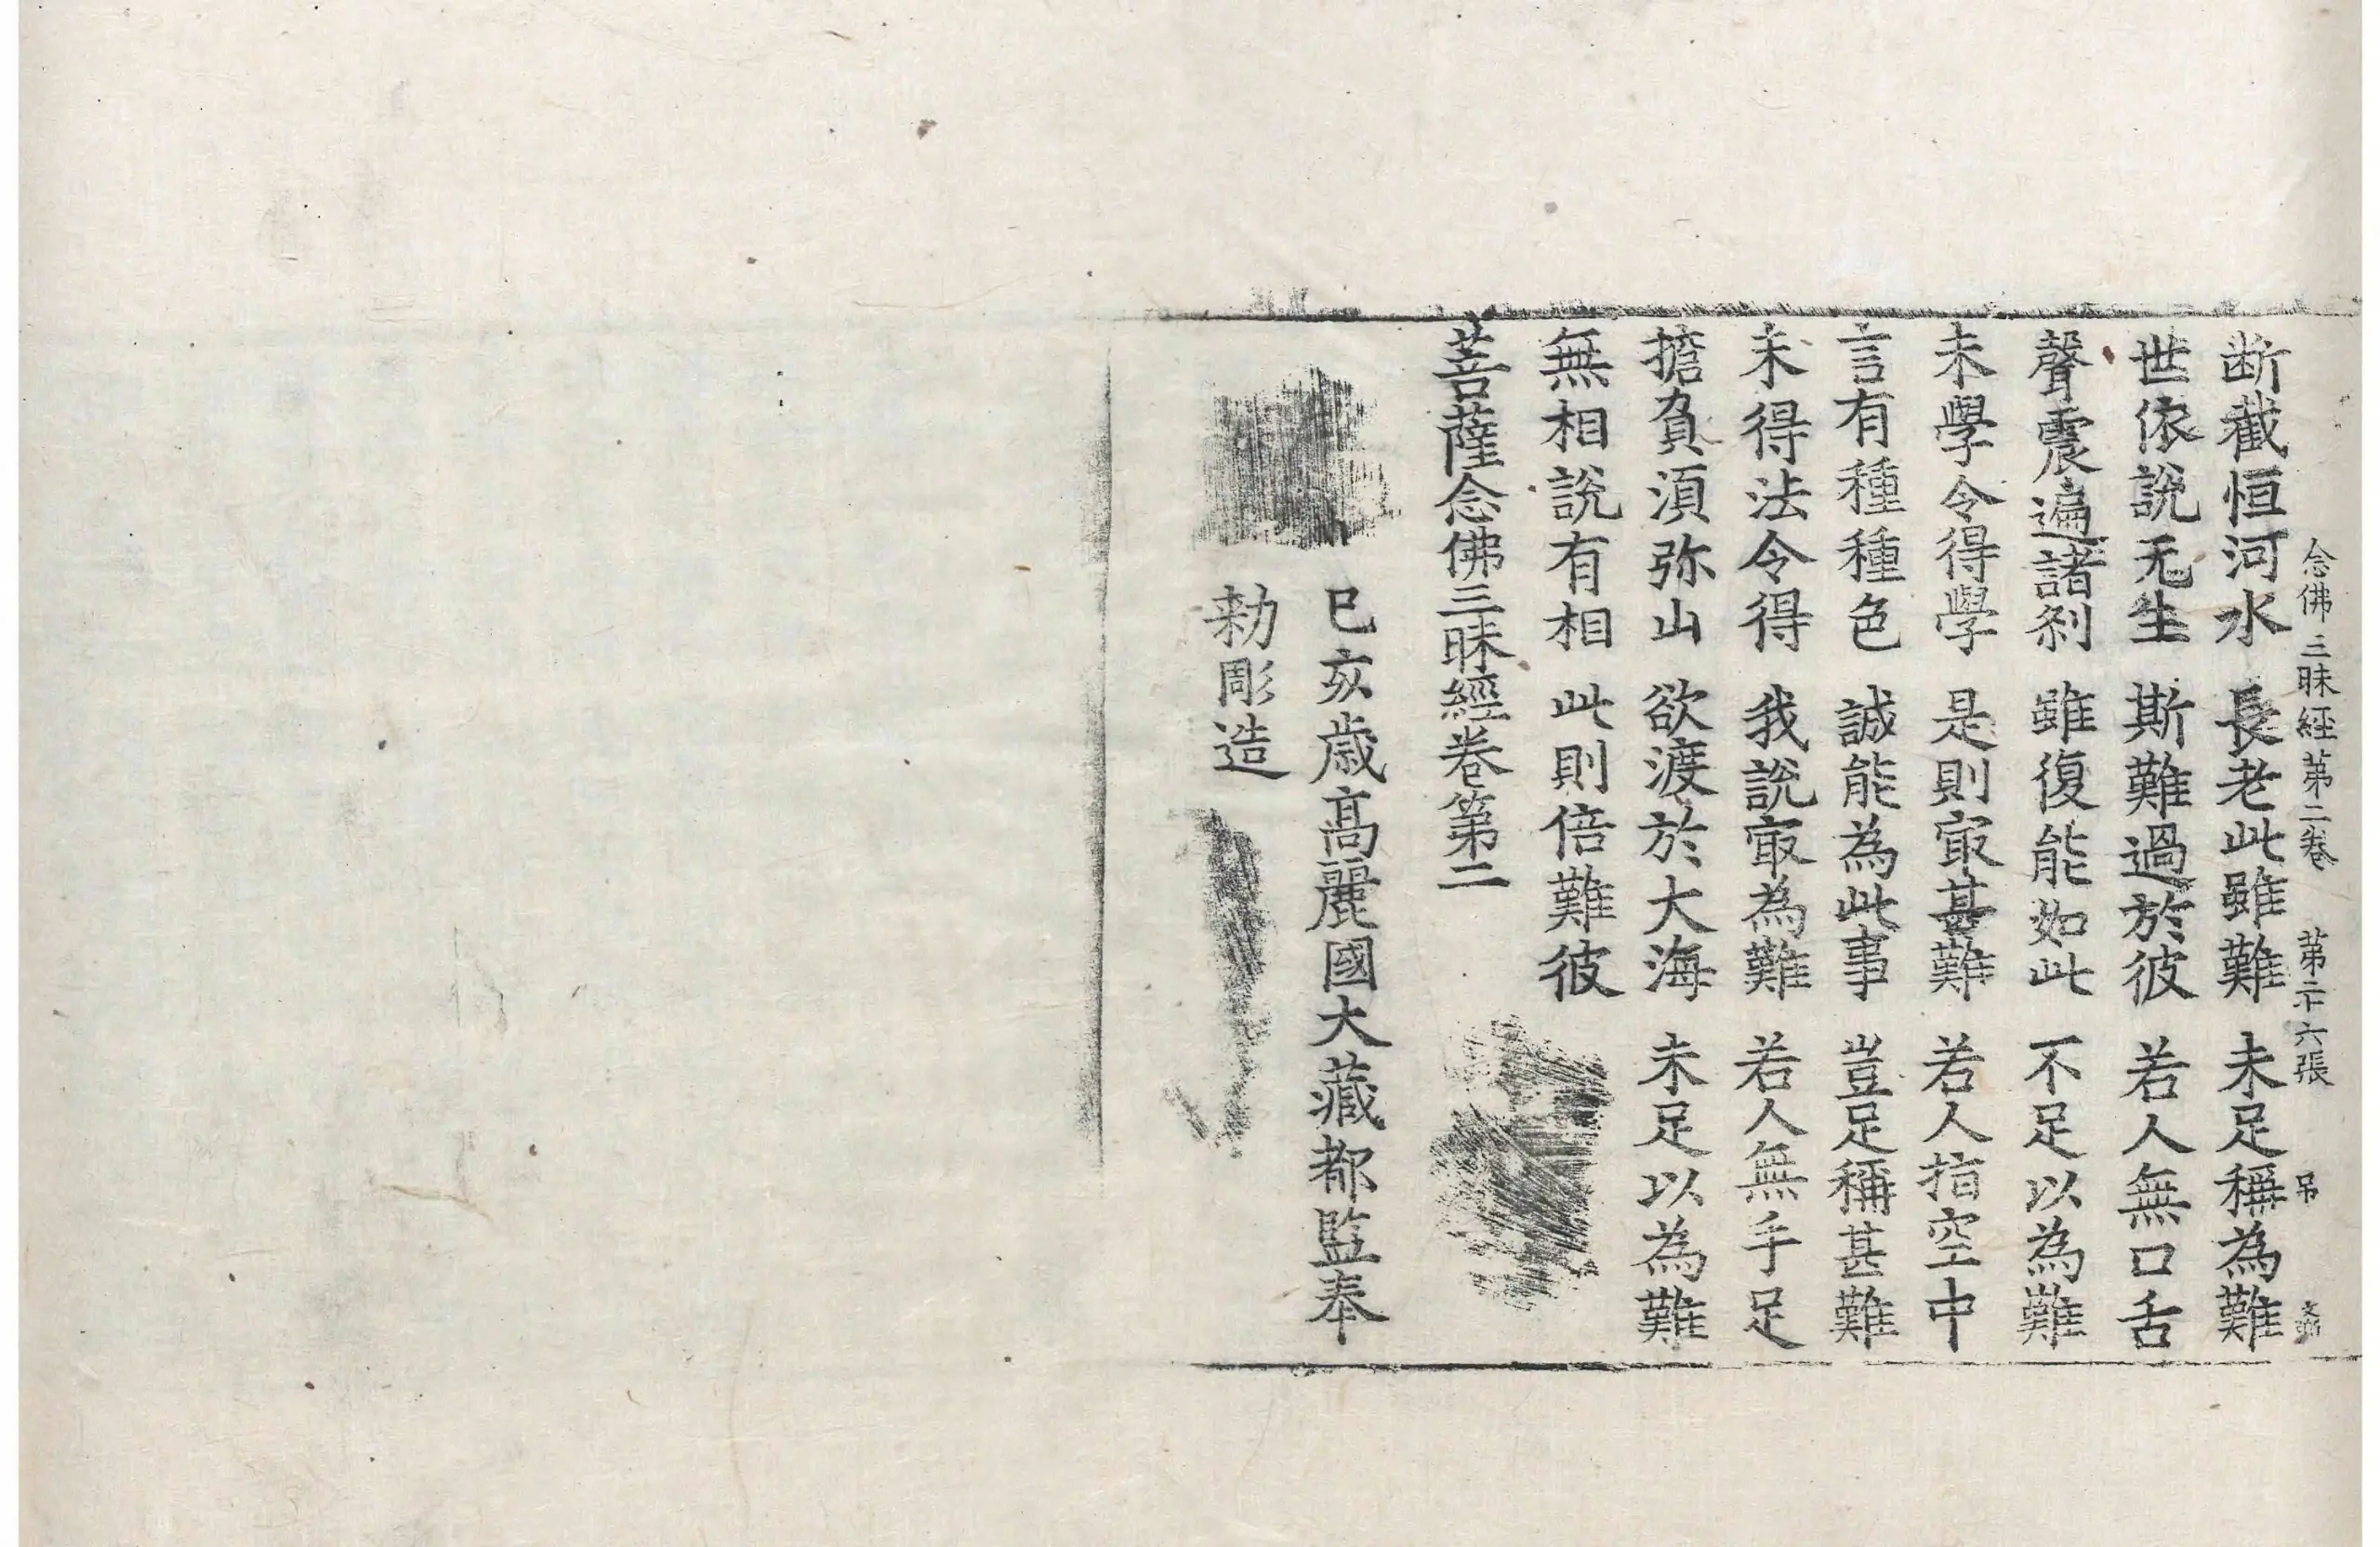 念佛三昧經第二卷 第二十六張 吊
断截恒河水 長老此雖難 未足稱為難
世依說无生 斯難過於彼 若人無口舌
聲震遍諸刹 雖復能如此 不足以為難
未學令得學 是則㝡甚難 若人指空中
言有種種色 誠能為此事 豈足稱甚難
未得法令得 我說㝡為難 若人無手足
擔負須弥山 欲渡於大海 未足以為難
無相說有相 此則倍難彼
菩薩念佛三昧經卷第二
己亥歳高麗國大藏都監奉
勅彫造